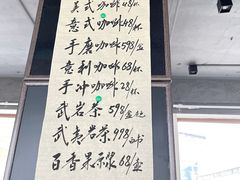 美式咖啡48/杯
意式咖啡48/杯
手磨咖啡598/壶
意利咖啡68/杯
手冲咖啡28/杯
武岩茶 598/壶
武夷岩茶998/
百香果 68/壶